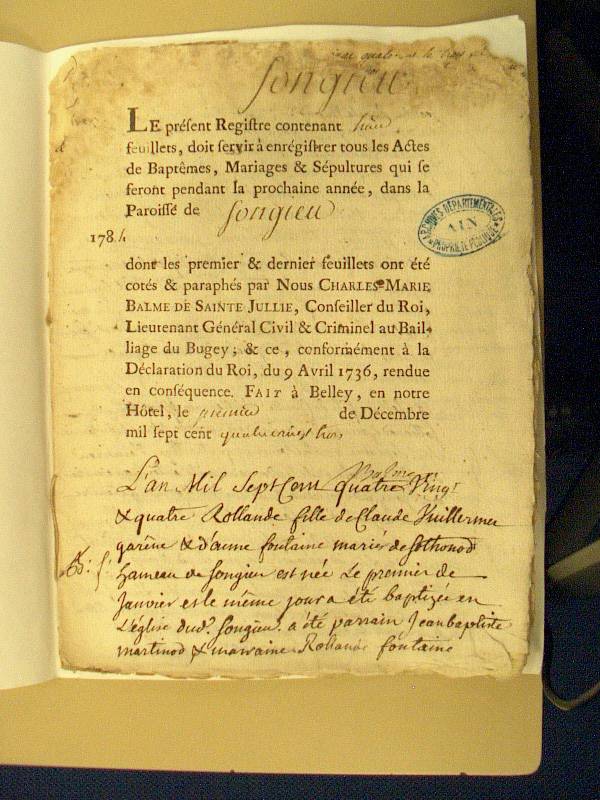 Songieu
LE présent Registre contenant huit
feuillets, doit servir à enrégistrer tous les Actes
de Baptêmes, Mariages & Sépultures qui se
feront pendant la prochaine année, dans la
Paroisse de Songieu
1784
dont les premier & dernier feuillets ont été
cotés & paraphés par Nous CHARLES-MARIE
BALME DE SAINTE JULLIE, Conseiller du Roi,
Lieutenant Général Civil & Criminel au Bail-
liage du Bugey; & ce, conformément à la
Déclaration du Roi, du 9 Avril 1736, rendue
en conséquence. FAIT à Belley, en notre
Hôtel, le premier de Décembre
mil sept cent quatre vingt trois
Balme
L'an Mil Sept Cent quatre Vingt
& quatre Rollande fille de Claude Vuillermer
garène & d'anne fontaine mariés de Sothonod
B: f: hameau de Songieu est née Le premier de
Janvier et le même jour a été baptizée en
L'église dud. Songieu. a été parrain Jean baptiste
martinod & marraine Rollande fontaine
ARCHIVES DÉPARTEMENTALES
AIN
PROPRIÉTÉ PUBLIQUE